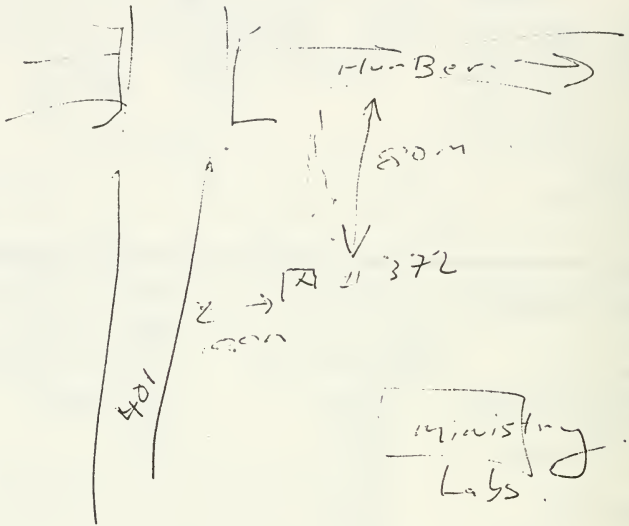 HumBer
80m
# 372
401
Ministry
Labs.